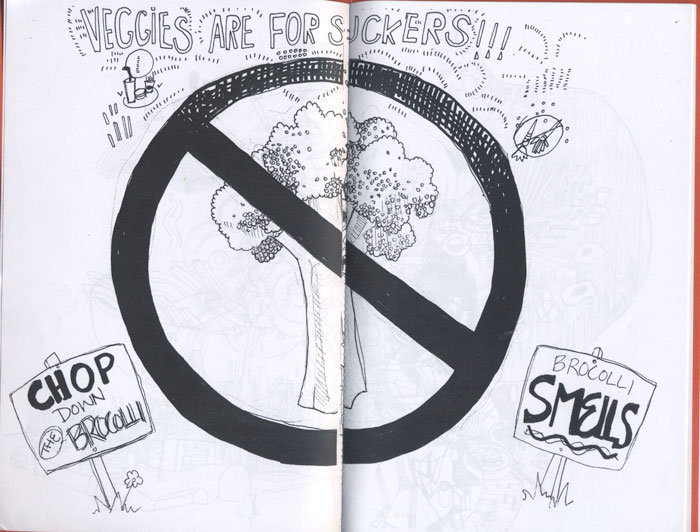 VEGGIES ARE FOR SUCKERS!!!
CHOP
DOWN
THE BROCOLLI
BROCOLLI
SMELLS